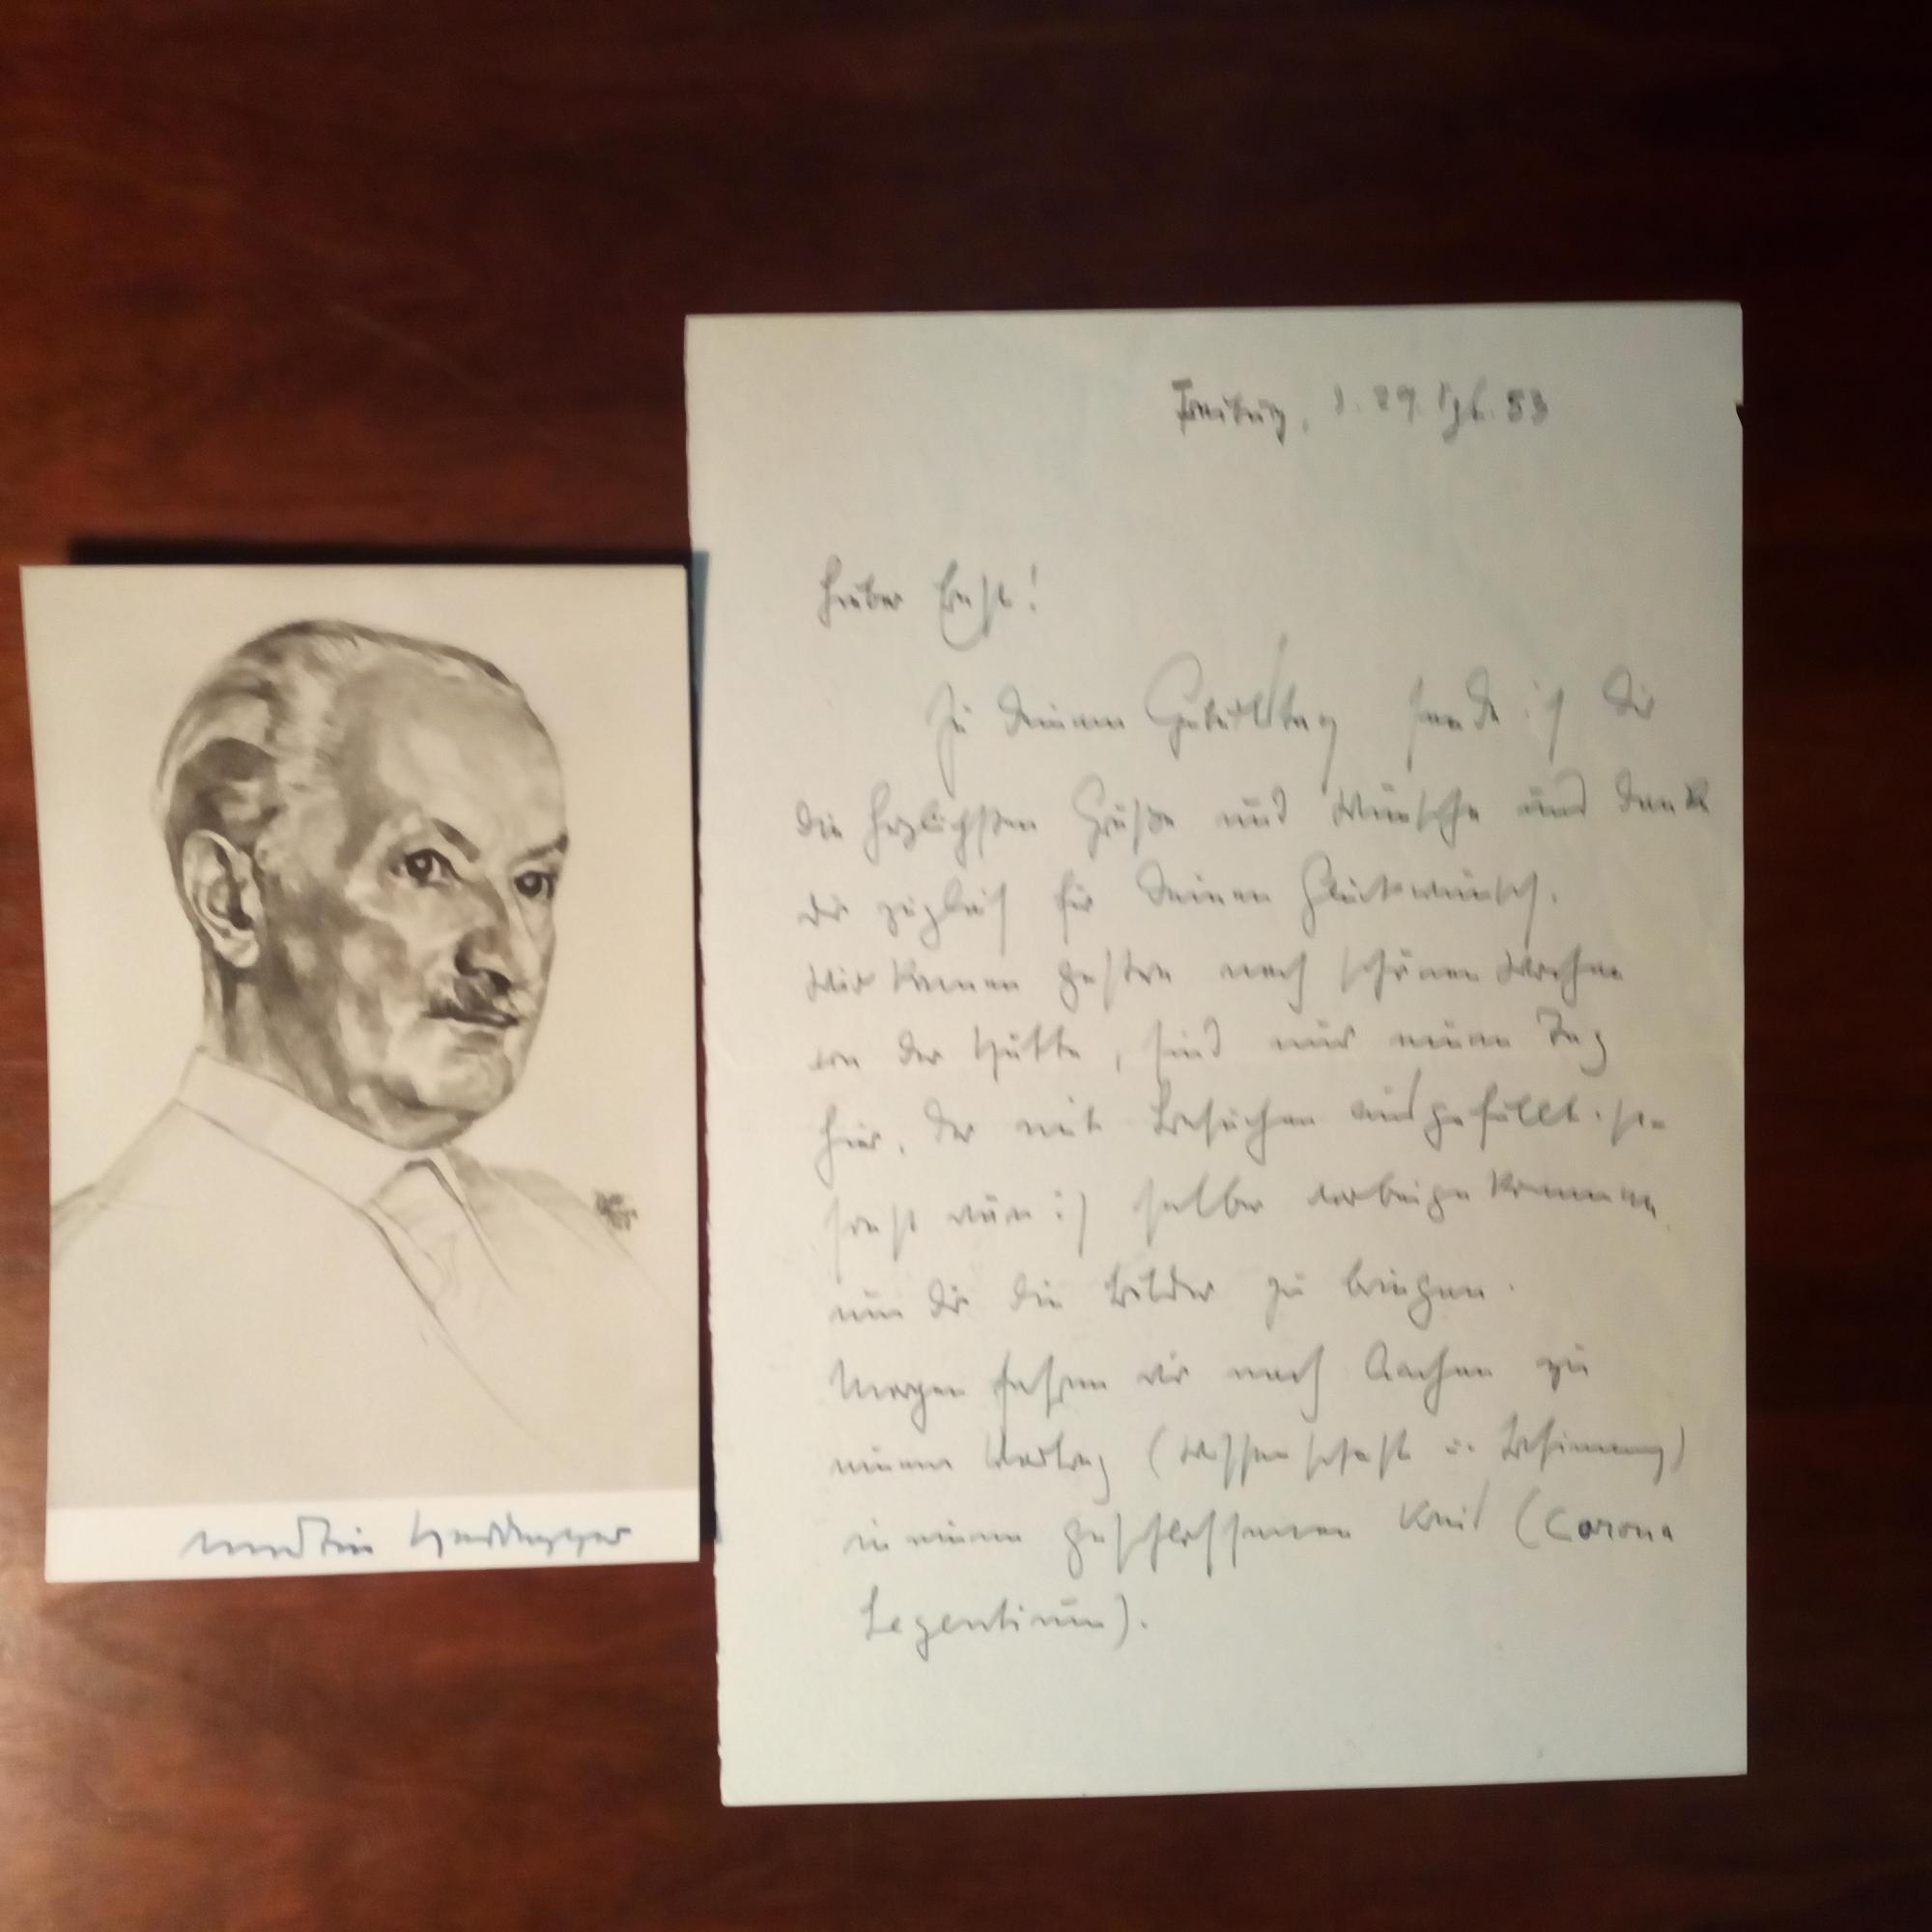 Freiburg, d. 29. Spt. 53
Lieber Ernst!
Zu Deinem Geburtstag sende ich Dir
die herzlichsten Grüße und Wünsche und danke
Dir zugleich für Deinen Glückwunsch.
Wir kamen gestern nach schönen Wochen
von der Hütte, sind nur einen Tag
hier, der mit Besuchen ausgefüllt ist.
sonst wäre ich selber vorbeigekommen
um Dir die Bilder zu bringen.
Morgen fahren wir nach Aachen zu
einem Vortrag (Wissenschaft u. Besinnung)
in einem geschlossenen Kreis (Corona
Legentium).
Martin Heidegger